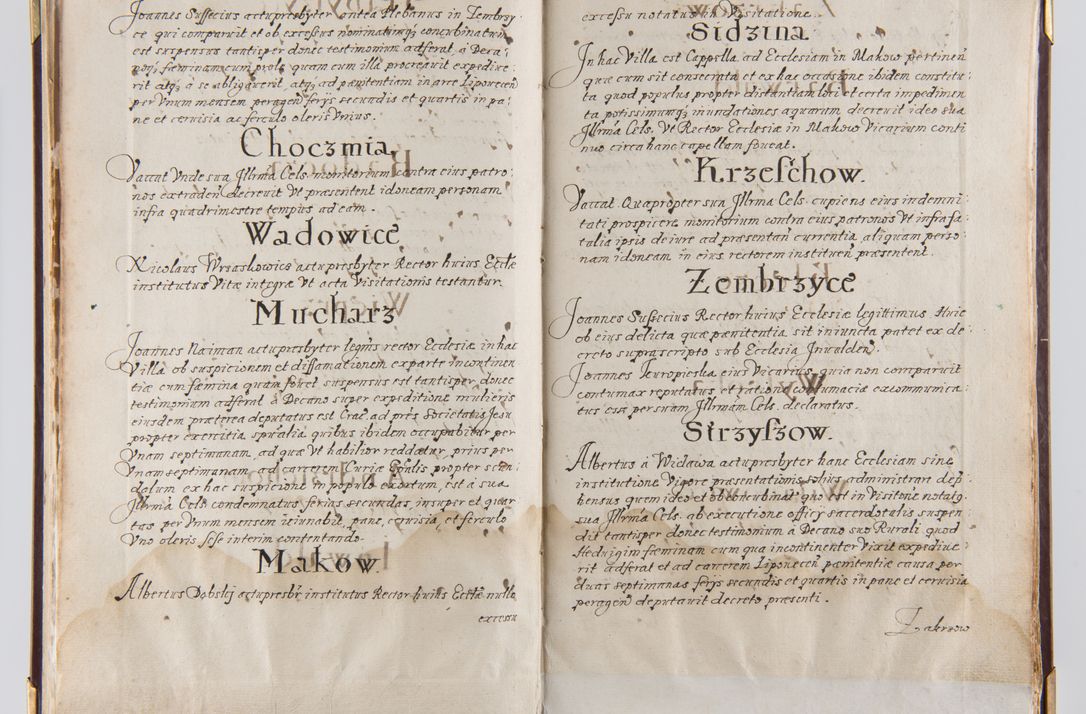 Joannes Sussecius actu presbyter ontea Plebanus in Zembrzy
ce qui comparuit et ob excessus nominatumq concubinatum
est suspensus tantisper donec testimonium adferat a Deca
non, fæminam cum prole quam cum illa procreavit expedive
rit atq a se abligaverit, atq ad pænitentiam in arce Liponecen
per Vnum mensem peragen ferys secundis et quartis in pa
ne et cervisia ac ferculo oleris Vnius.
Choczmia
Vaccat Vnde sua Jllrma Cels monitorium contra eius patro
nos extraden decrevit Vt præsentent idoneam personam
infra quadrimestre tempus ad eam.
Wadowice
Nicolaus Wrzaskowicz actu presbyter Rector huius Ecclæ
institutus Vitæ integræ Vt acta Visitationis testantur.
Mucharz
Joannes Naiman actu presbyter legms rector Ecclesiæ in hac
Villa ob suspicionem et diffamationem ex parte incontinen
tiæ cum fæmina quam fovet suspensus est tantisper donec
testimonium adferat à Decano super expeditione mulieris
eiusdem præterea deputatus est Crac ad prēs Societatis Jesu
propter exercitia spūalia quibus ibidem occupabitur per
Vnam septimanam, ad quæ Vt habilior reddatur, prius per
Vnam septimanam ad carcerem Curiæ Epālis propter scan
dalum ex hac suspicione in populo exortum, est à sua
Jllrma Cels condemnatus ferias secundas, insuper et quar
tas per Vnum mensem ieiunabit, pane, cervisia, et ferculo
Vno oleris sese interim contentando.
Makow
Albertus Dobskij actu presbr institutus Rector huius Ecclæ nullo
excessu
excessu notatus in Visitatione.
Sidzina
Jn hac Villa est Cappella ad Ecclesiam in Makow pertinen
quæ cum sit consecrata et ex hac occasione ibidem constitu
ta quod populus propter distantiam loci et certa impedimen
ta potissimumq inundationes aquarum decrevit ideo sua
Jllrma Cels. Vt Rector Ecclesiæ in Makow Vicarium conti
nuo circa hanc capellam foveat.
Krzeschow.
Vaccat. Quapropter sua Jllrma Cels. cupiens eius indemni
tati prospicere monitorium contra eius patronos Vt infra fa
talia ipsis de iure ad præsentan currentia aliquam perso
nam idoneam in eius rectorem instituen præsentent.
Zembrzyce
Joannes Sussecius Rector huius Ecclesiæ legittimus. Huic
ob eius delicta quæ pænitentia sit iniuncta patet ex de
creto suprascripto sub Ecclesia Jnwalden.
Joannes eius Vicarius, quia non comparuit
contumax reputatus et ratione contumaciæ excommunica
tus est per suam Jllrmam Cels. declaratus.
Strzyszow.
Albertus à Widawa actu presbyter hanc Ecclesiam sine
institutione Vigore præsentationis solius administrare dep
hensus quem ideo et ob concubinat quo est in Visitone notatq
sua Jllrma Cels. ab executione officy sacerdotalis suspen
dit tantisper donec testimonium à Decano suo Rurali quod
Hedvigim fæminam cum qua incontinenter Vixit expedive
rit adferat et ad carcerem Liponecen pænitentiæ causa per
duas septimanas ferys secundis et quartis in pane et cervisia
peragen deputavit decreto præsenti.
Zakrzow